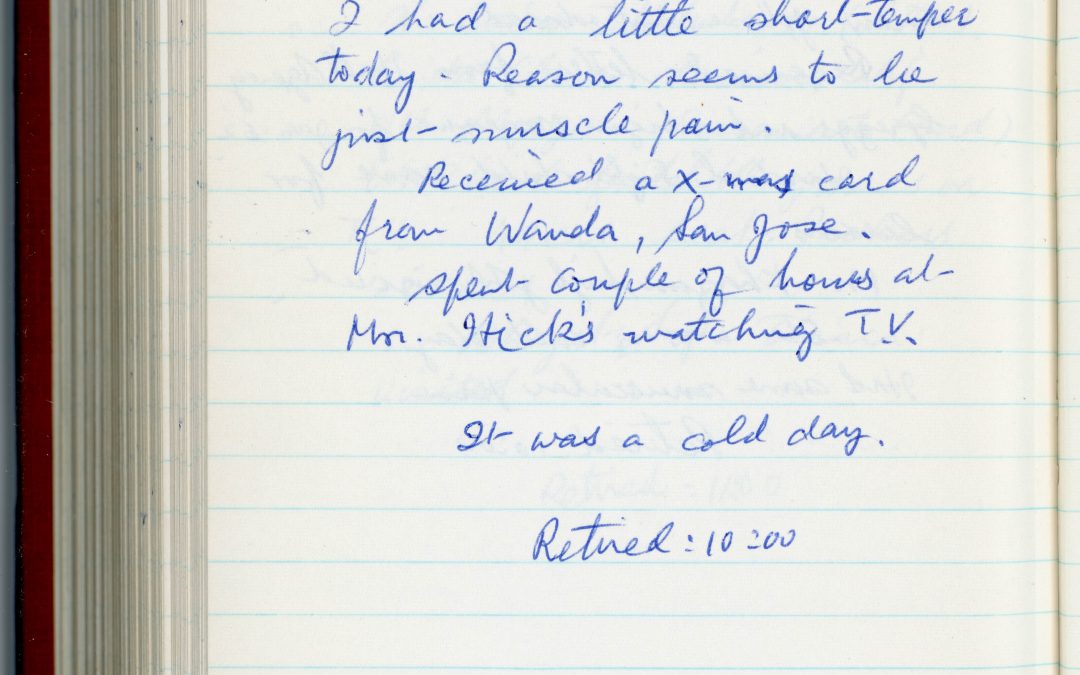 I had a little short-temper
today. Reason seems to be
just muscle pain.
Received a X-mas card
from Wanda, San Jose.
spent couple of hours at
Mr. Hick's watching T.V.
It was a cold day.
Retired: 10:00